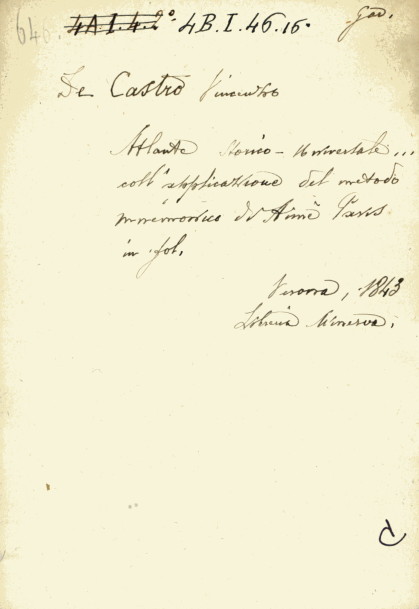 646. 4A.I.4.2º 4B.I.46.16. God.
De Castro Vincenzo
Atlante storico-universale...
coll'applicazione del metodo
mnemonico di Aimè Paris
in fol.
Verona, 1843
Libreria Minerva.
C